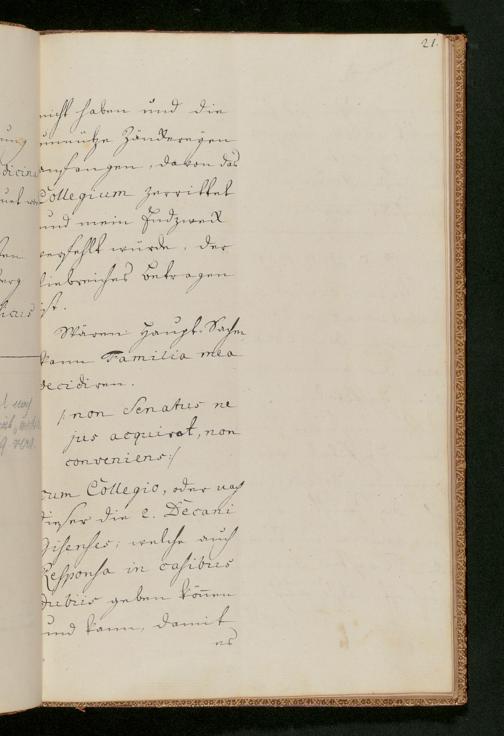 21.
nicht haben und die
unnütze Zänkereyen
anfangen, davon das
Collegium zerrüttet
und mein Endzweck
verfehlt würde, der
liebreiches Betragen
ist.
Wären Haupt-Sachen
kann Familia mea
decidiren.
/: non Senatus ne
jus acquirat, non
conveniens :/
cum Collegio, oder nach
dieser die 2. Decani
Gisenses; welche auch
Responsa in casibus
dubiis geben können
und kann, damit
es